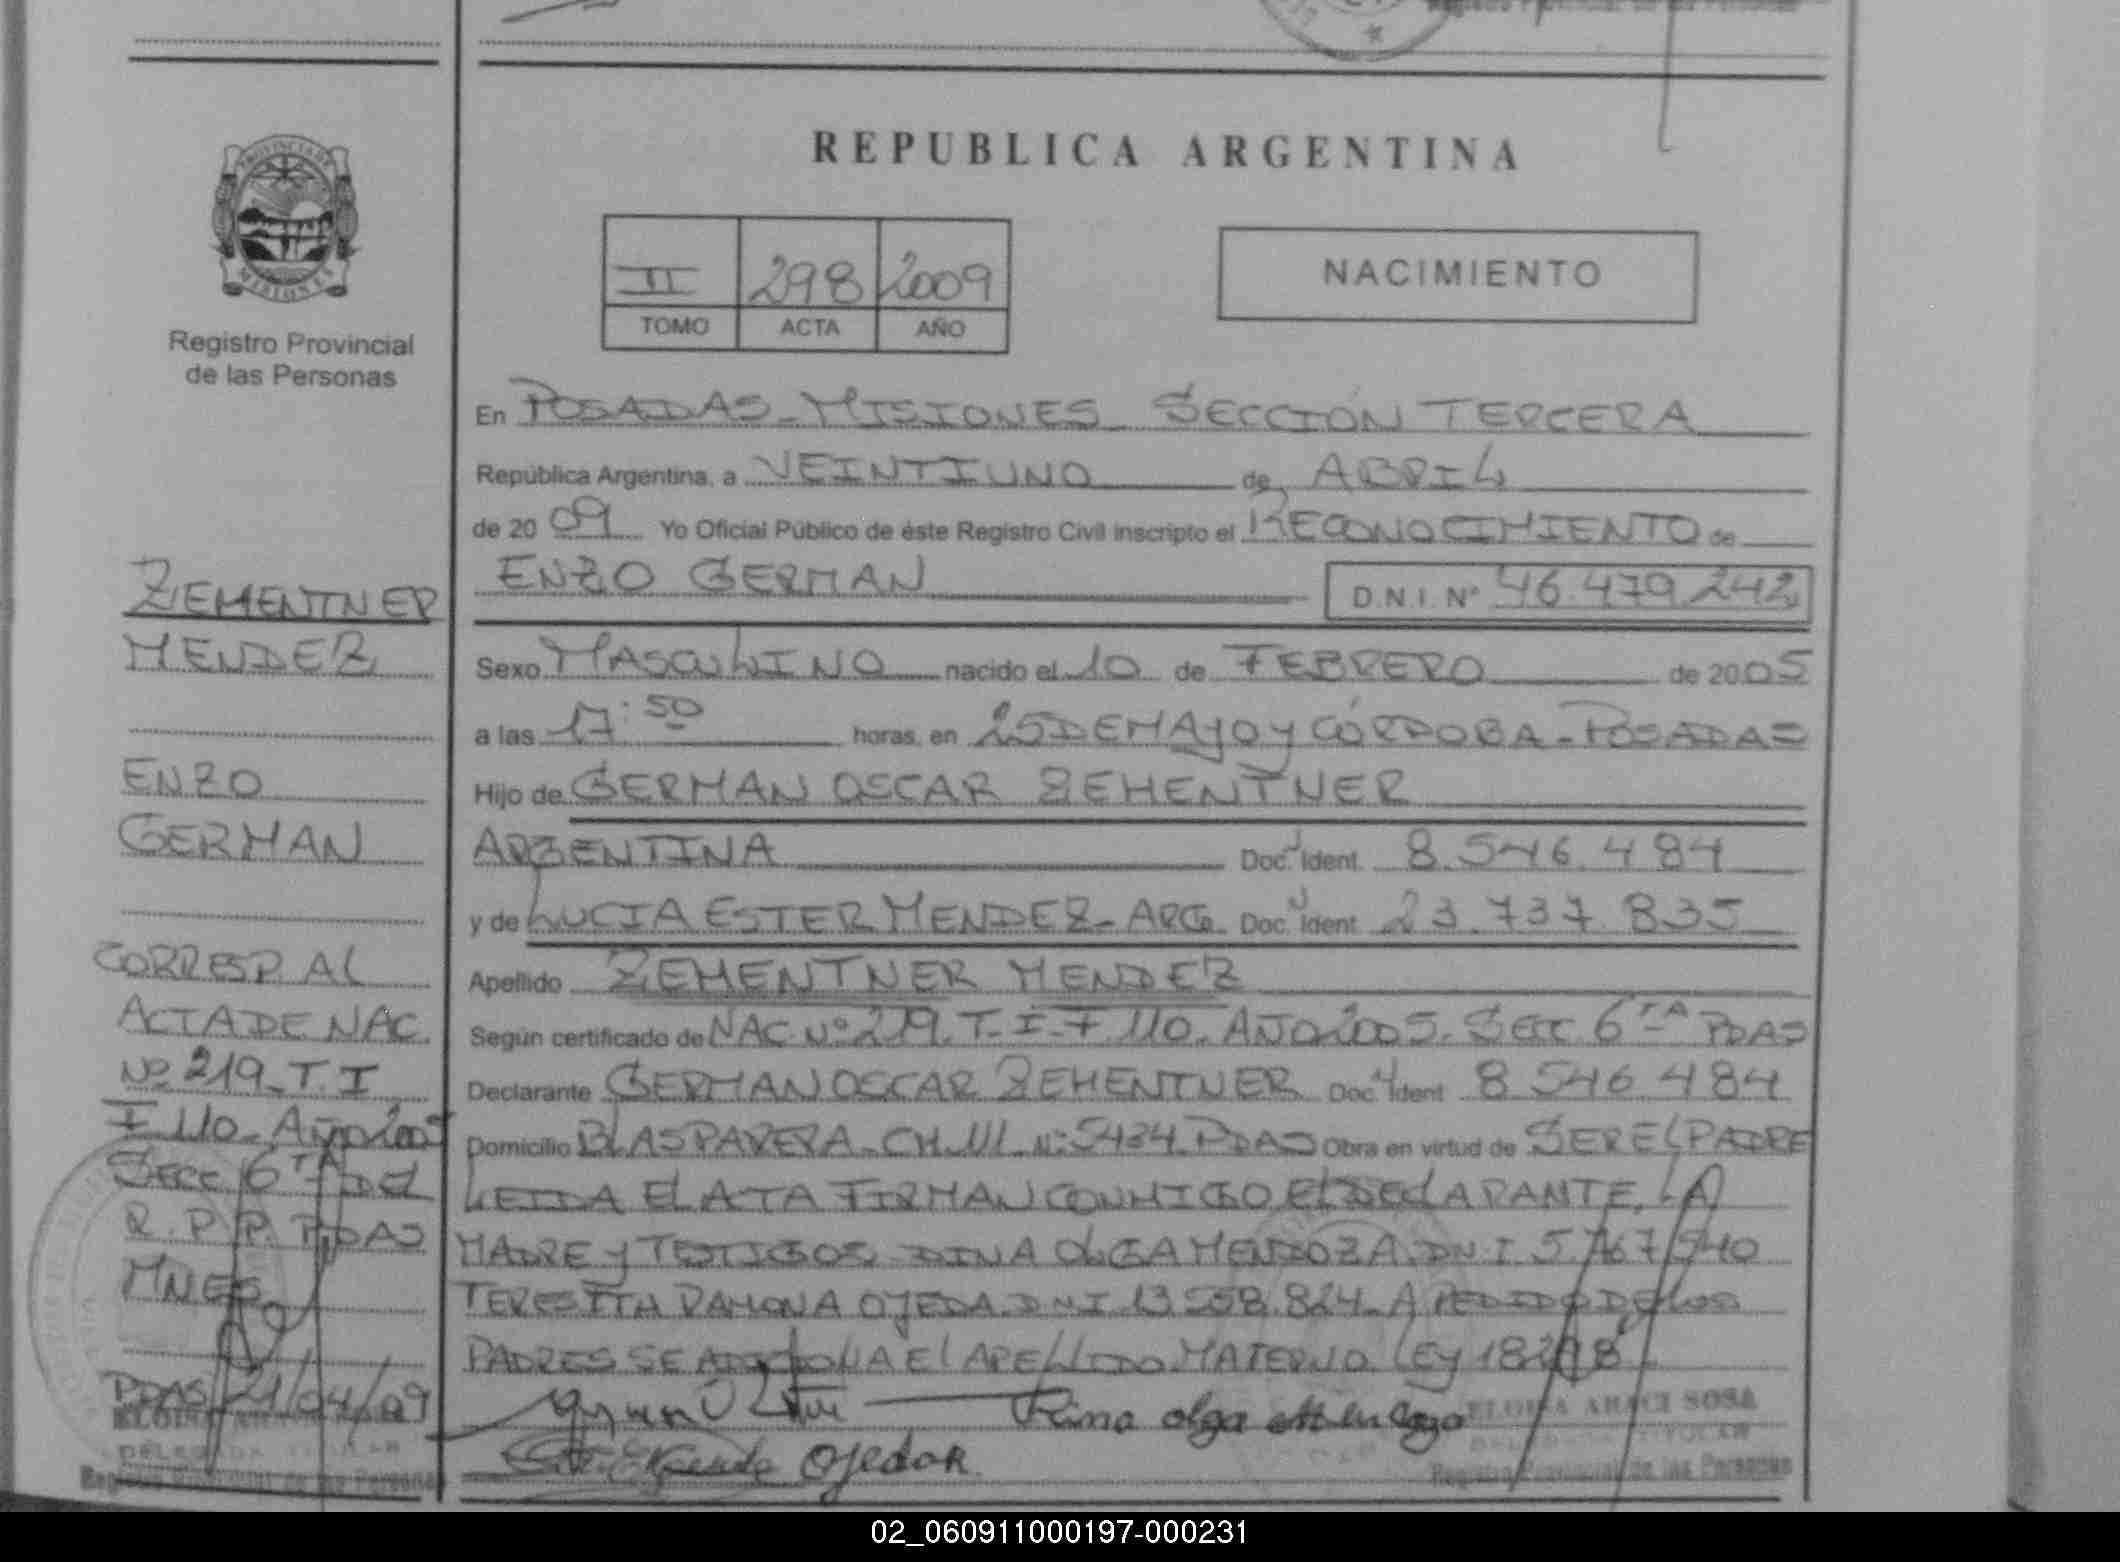 Registro Provincial de las Personas
REPUBLICA ARGENTINA
PROVINCIA DE
MISIONES
II 298 2009
TOMO ACTA AÑO
NACIMIENTO
Registro Provincial
de las Personas
En POSADAS - MISIONES SECCIÓN TERCERA
República Argentina, a VEINTIUNO de ABRIL
de 20 09 Yo Oficial Público de éste Registro Civil inscripto el RECONOCIMIENTO de
ENZO GERMAN D.N.I. Nº 46.479.242
Sexo MASCULINO nacido el 10 de FEBRERO de 2005
a las 17:50 horas, en 25 DE MAYO y CÓRDOBA - POSADAS
Hijo de GERMAN OSCAR ZEMENTNER
ARGENTINA Doc. Ident. 8.546.484
y de LUCIA ESTER MENDEZ - ARG. Doc. Ident. 23.737.835
Apellido ZEMENTNER MENDEZ
Según certificado de NAC. Nº 219. T. I - F 110. AÑO 2005. SECC. 6TA PDAS
Declarante GERMAN OSCAR ZEMENTNER Doc. Ident. 8 546 484
Domicilio BLAS PARERA - CH. Nº 5434 PDAS Obra en virtud de SER EL PADRE
LEIDA EL ATA FIRMAN CONMIGO EL DECLARANTE, LA
MADRE y TESTIGOS DINA OLGA MENDOZA D.N.I 5.767.540
TERESITA RAMONA OJEDA DNI 13.558.824 - A PEDIDO DE LOS
PADRES SE ADICIONA EL APELLIDO MATERNO LEY 18248
olga
Ojeda R.
ELOISA ARACI SOSA
DELEGADA TITULAR
Registro Provincial de las Personas
ZEMENTNER
MENDEZ
ENZO
GERMAN
CORRESP. AL
ACTA DE NAC.
Nº 219 - T. I
F 110 - AÑO 2005
SECC 6TA DEL
R. P. P. PDAS
MNES
PDAS 21/04/09
DELEGADA TITULAR
Registro Provincial de las Personas
02_060911000197-000231